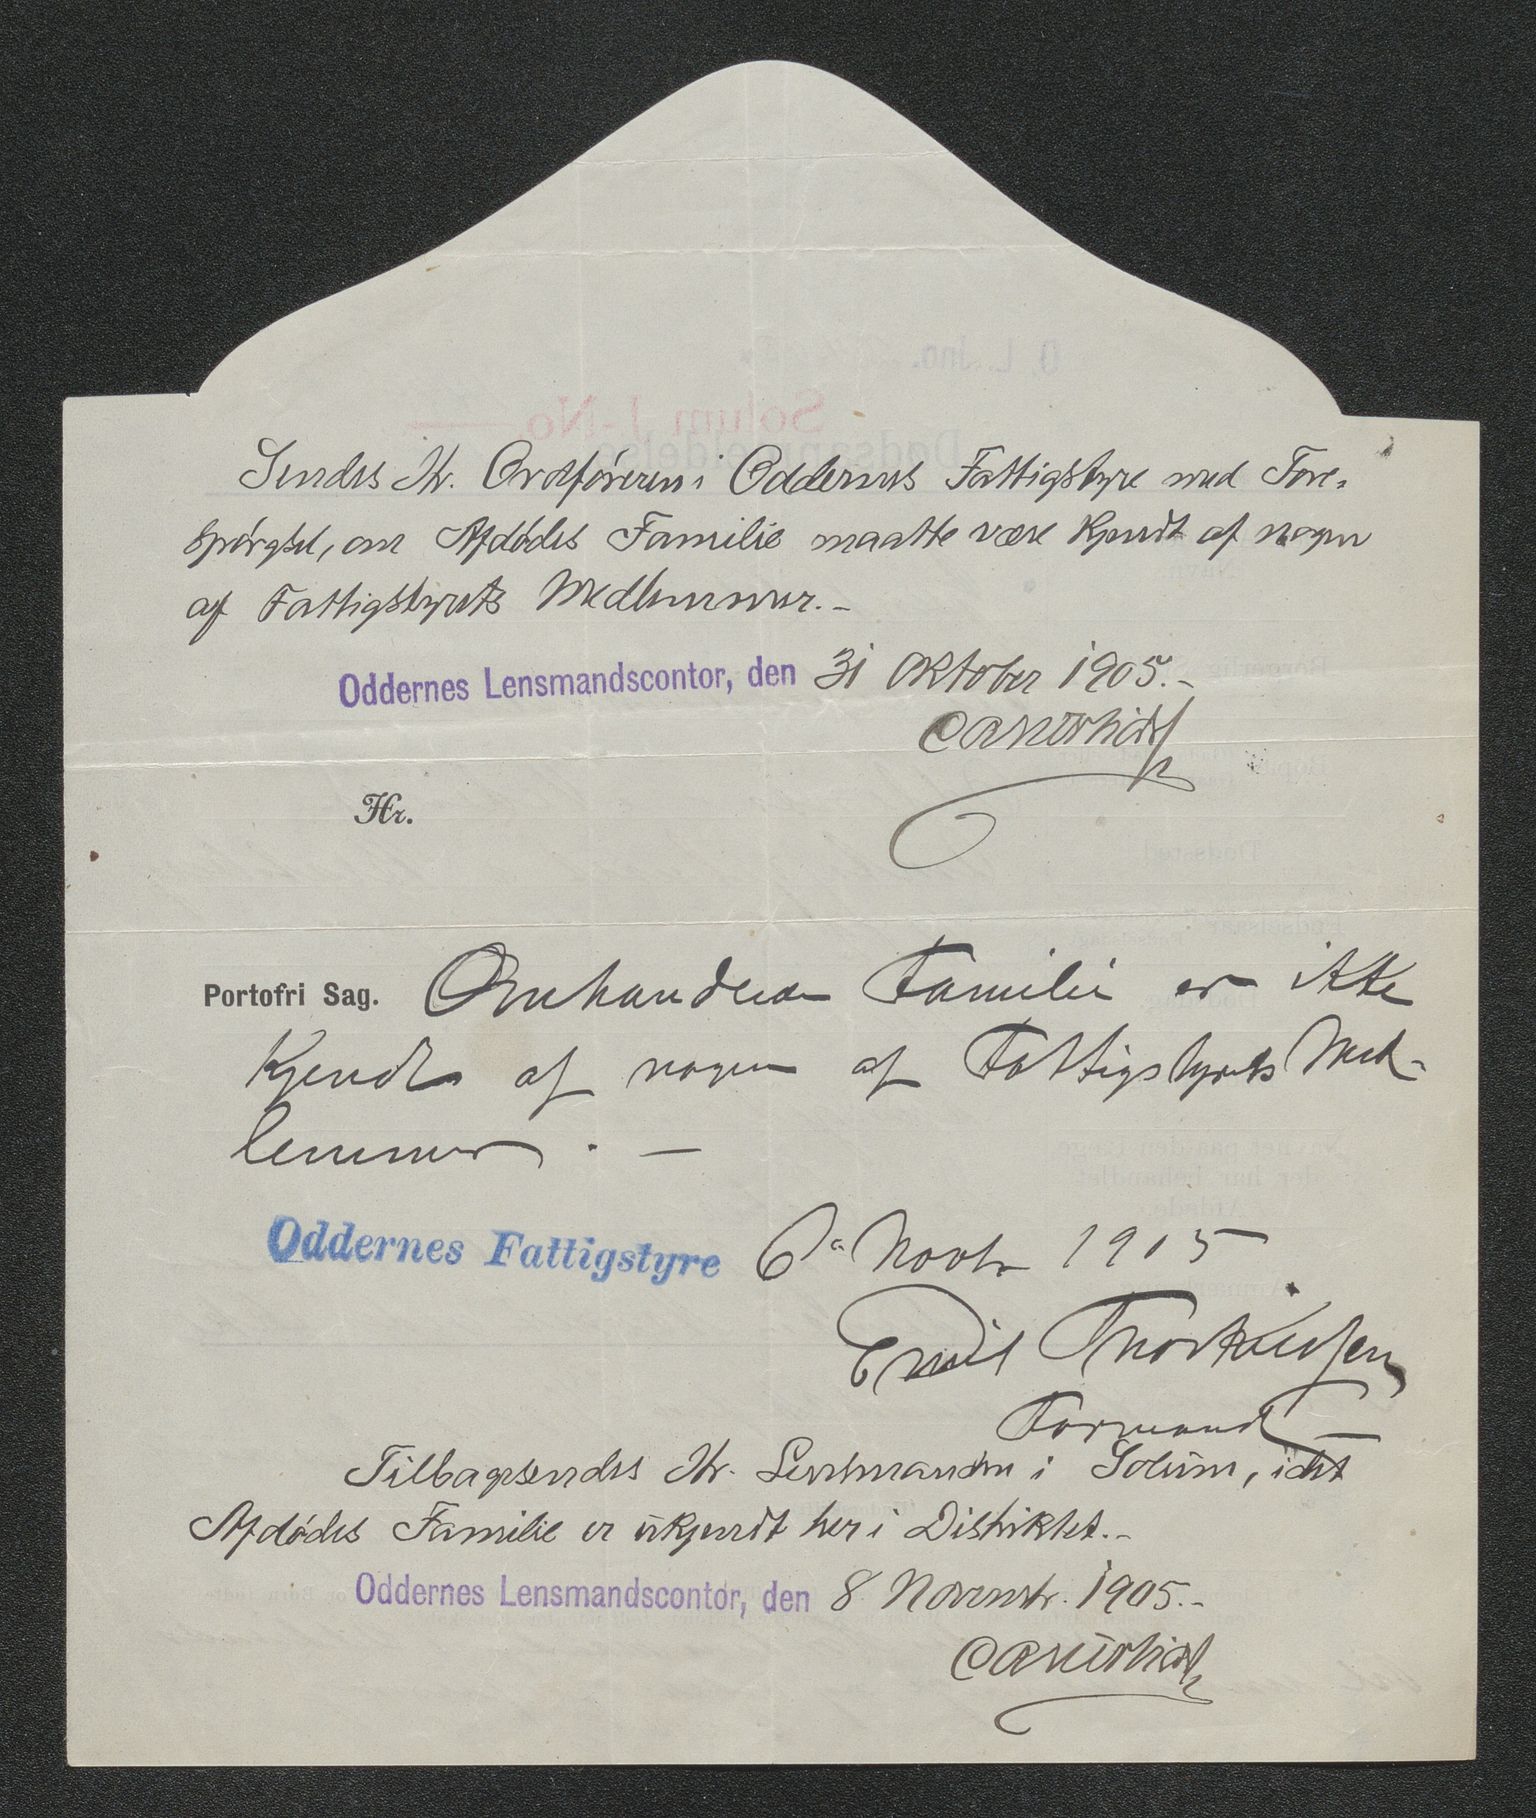 Sendes Hr. Ordføreren i Oddernes Fattigstyre med Fore-
spørgsel, om Afdødes Familie maatte være kjendt af nogen
af Fattigstyrets Medlemmer. -
Oddernes Lensmandscontor, den 31 Oktober 1905. -
Hr.
Portofri Sag. Omhandlede Familie er ikke
kjendt af nogen af Fattigstyrets Med-
lemmer. -
Oddernes Fattigstyre 6 Novbr 1905
Emil Thorkildsen
Formand
Tilbagesendes Hr. Lensmanden i Solum, idet
Afdødes Familie er ukjendt her i Distriktet. -
Oddernes Lensmandscontor, den 8 Novembr. 1905. -